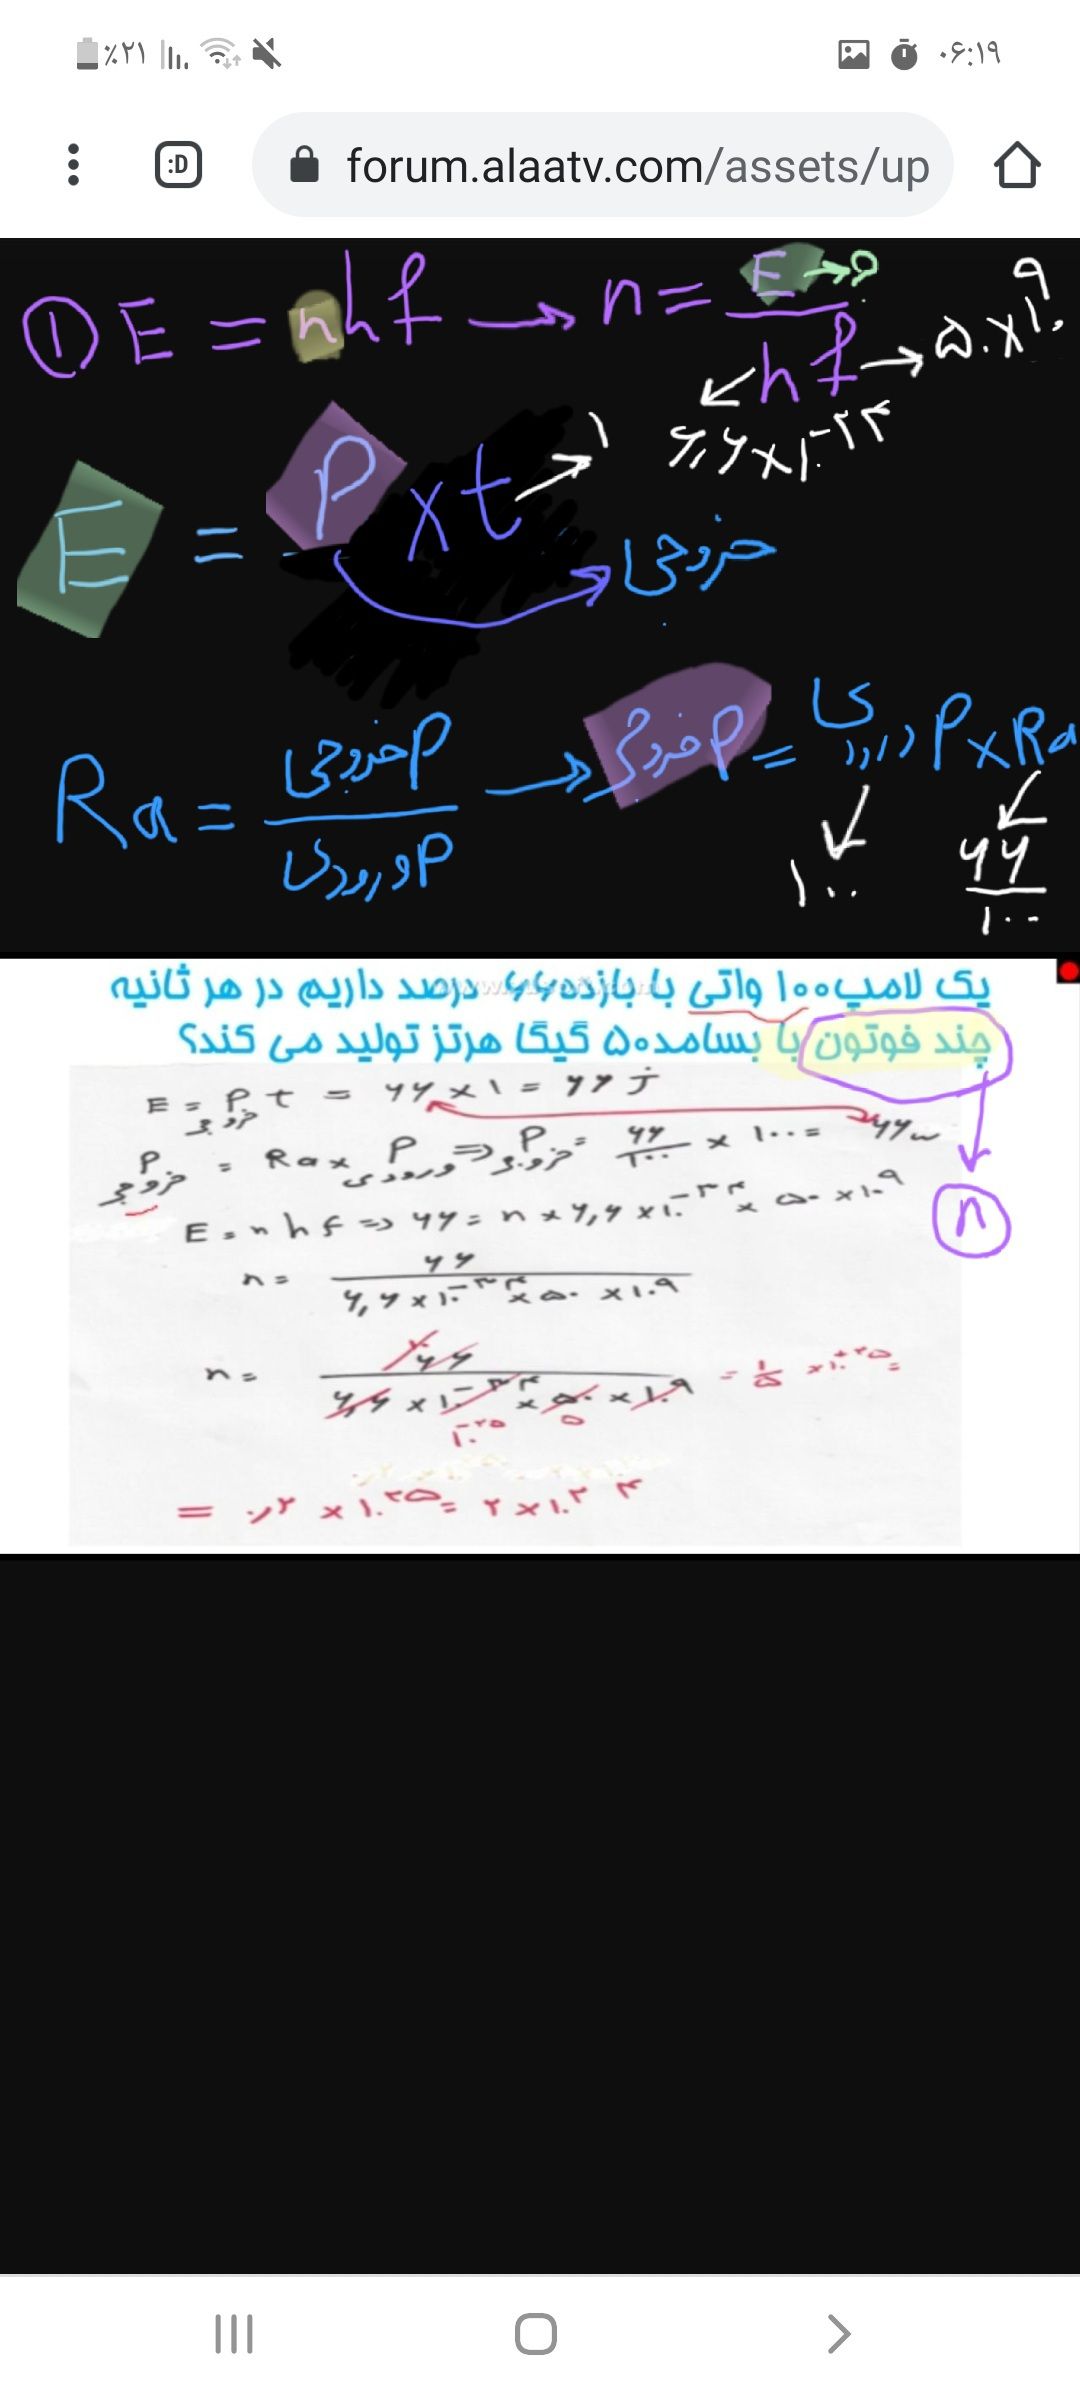 ٪۲۱ ۰۶:۱۹
:D forum.alaatv.com/assets/up
① E = nhf → n = E → ? / hf → ۵۰×۱۰^۹
۶,۶×۱۰^-۳۴
E = P × t → ۱
خروجی
Ra = Pخروجی / Pورودی → Pخروجی = Pورودی × Ra
۱۰۰ ۶۶/۱۰۰
یک لامپ ۱۰۰ واتی با بازده ۶۶ درصد داریم در هر ثانیه
چند فوتون با بسامد ۵۰ گیگا هرتز تولید می کند؟
E = Pخروجی t = ۶۶ × ۱ = ۶۶ j
Pخروجی = Ra × Pورودی ⇒ Pخروجی = ۶۶/۱۰۰ × ۱۰۰ = ۶۶w
E = nhf ⇒ ۶۶ = n × ۶,۶ × ۱۰^-۳۴ × ۵۰ × ۱۰^۹
n
n = ۶۶ / ۶,۶ × ۱۰^-۳۴ × ۵۰ × ۱۰^۹
n = ۶۶ / ۶,۶ × ۱۰^-۳۴ × ۵۰ × ۱۰^۹ = ۱/۵ × ۱۰^+۲۵ =
۱۰^-۲۵ ۵
= ۰,۲ × ۱۰^۲۵ = ۲ × ۱۰^۲۴